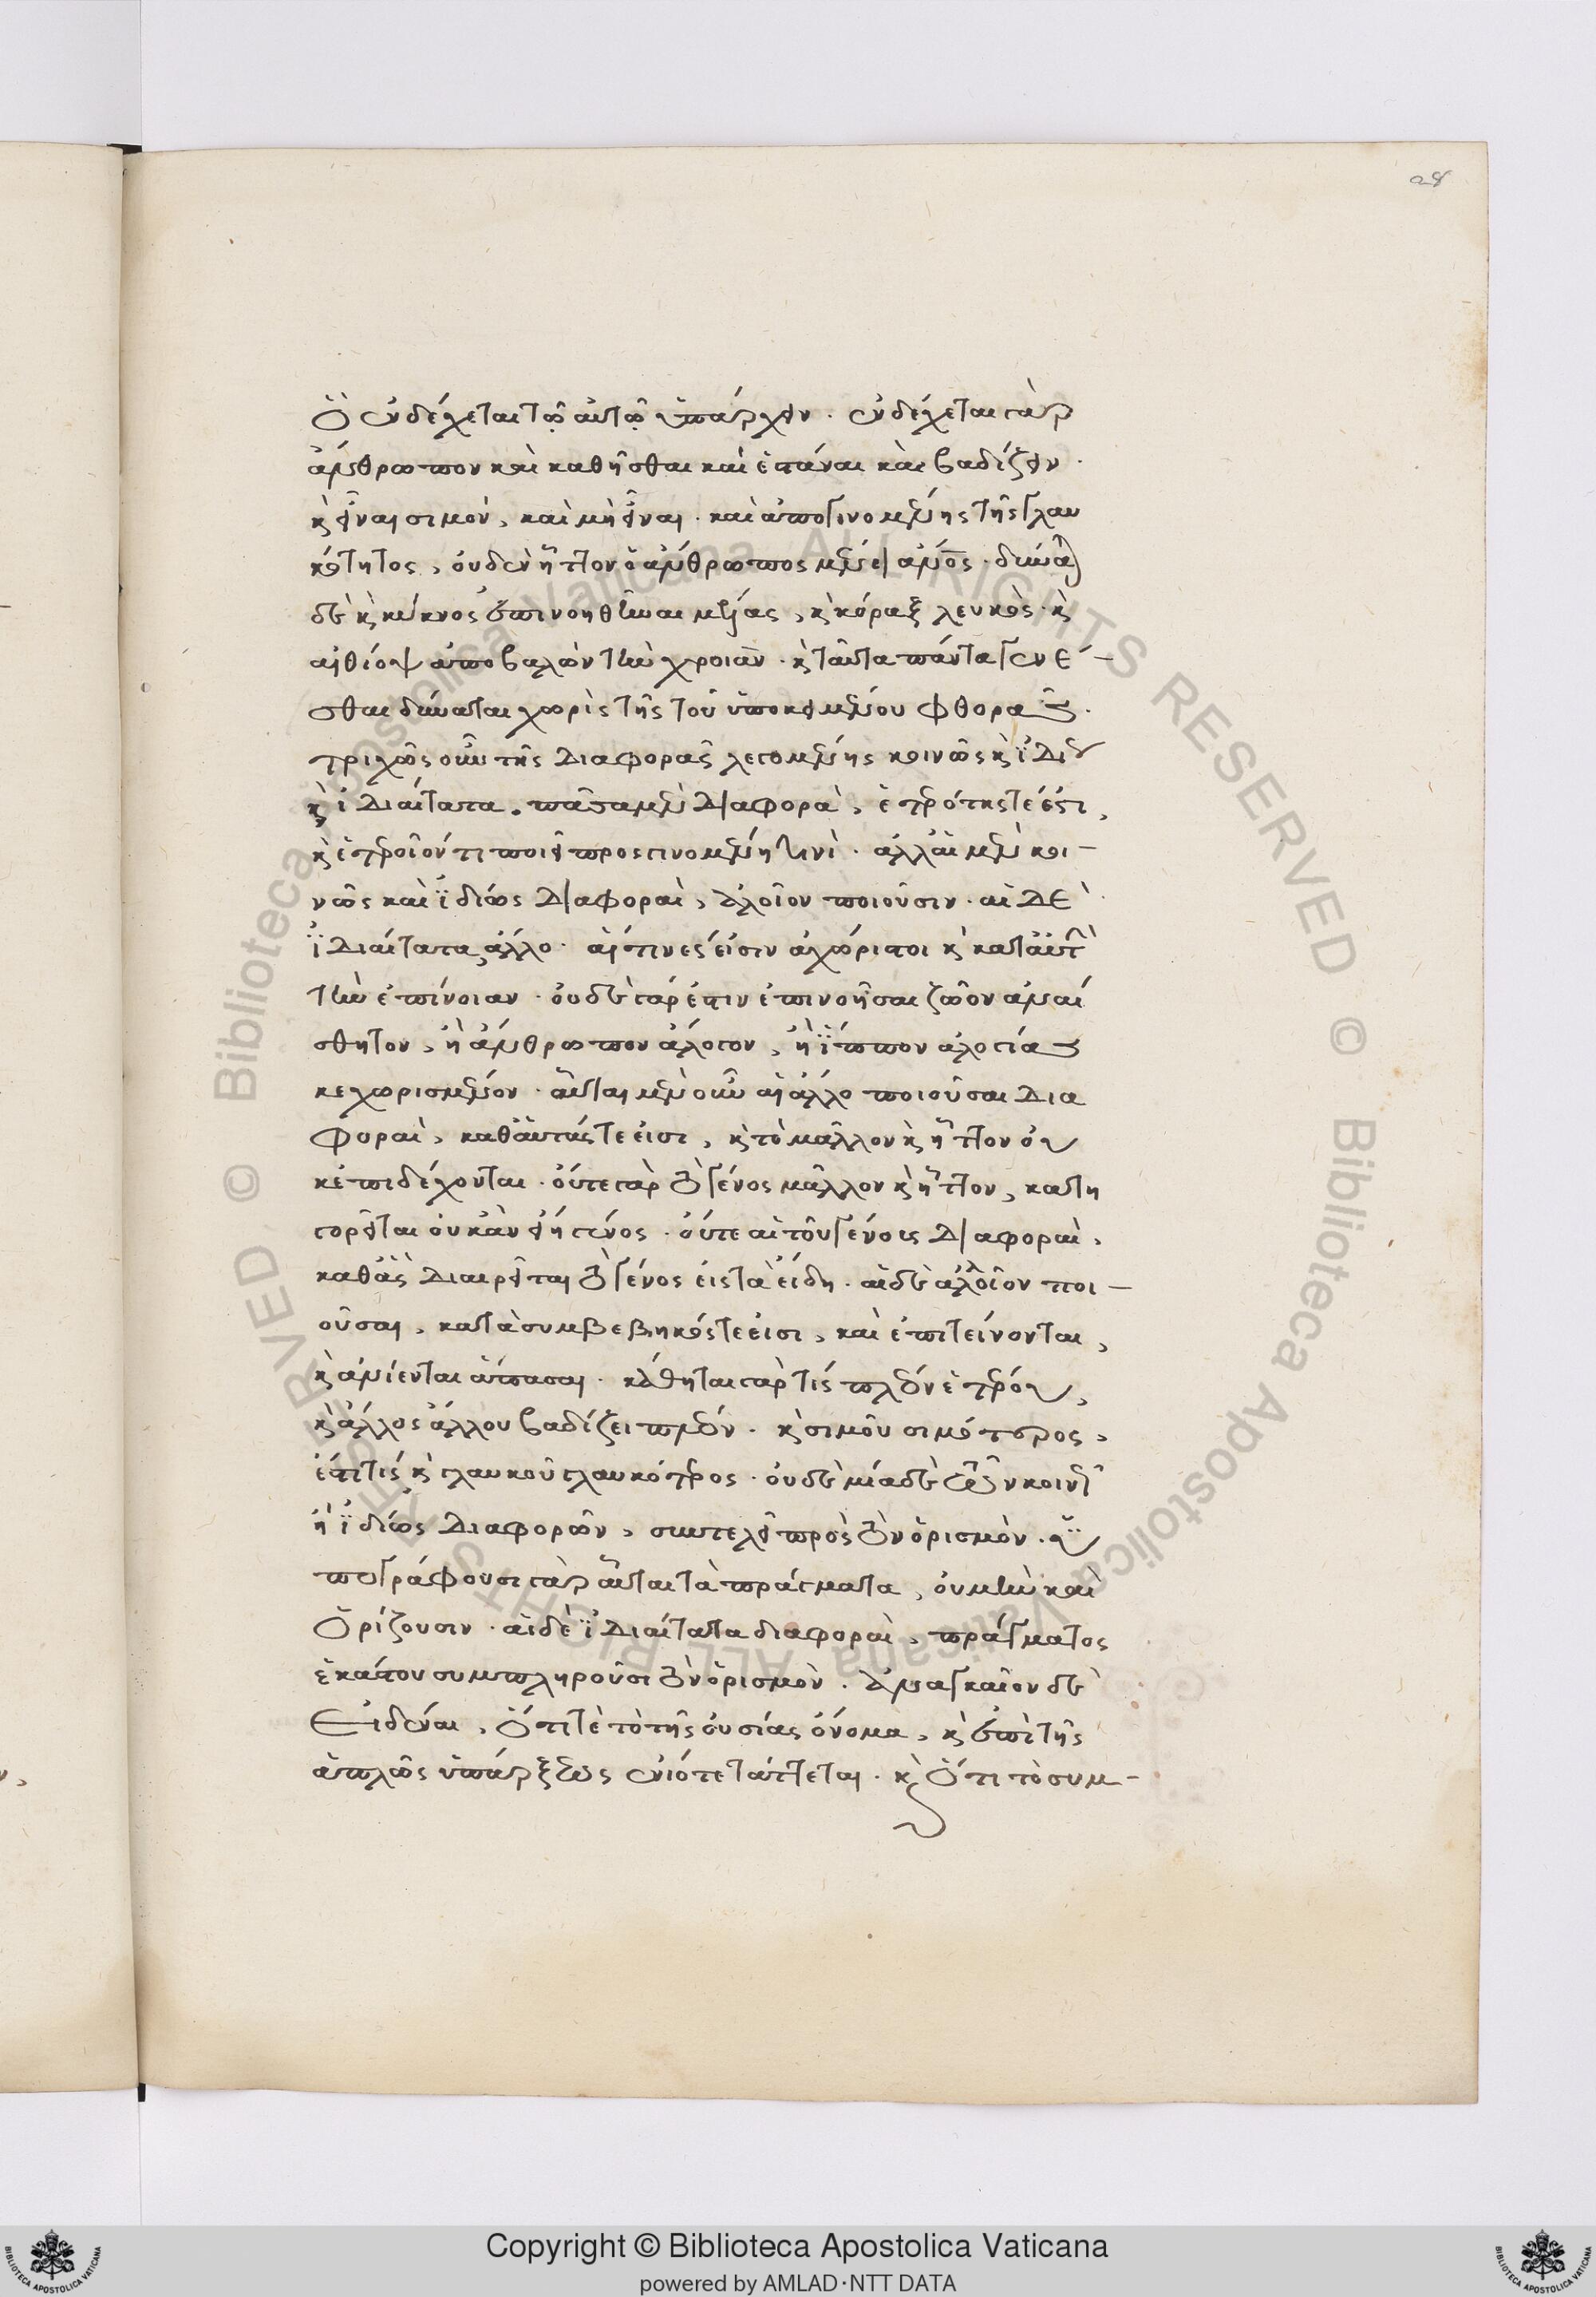 28
ὃ ἐνδέχεται τῷ αὐτῷ ὑπάρχειν · ἐνδέχεται γὰρ
ἄνθρωπον καὶ καθῆσθαι καὶ ἑστάναι καὶ βαδίζειν ·
κ εἶναι σιμὸν, καὶ μὴ εἶναι · καὶ ἀπογινομένης τῆς γλαυ
κότητος, οὐδὲν ἧττον ὁ ἄνθρωπος μένει ἄνος · δύναται
δὲ κ κύκνος ἐπινοηθῆναι μέλας, κ κόραξ λευκὸς · κ
αἰθίοψ ἀποβαλὼν τὴν χροιὰν · κ ταῦτα πάντα γενέ–
σθαι δύναται χωρὶς τῆς τοῦ ὑποκειμένου φθορᾶς ·
τριχῶς οὖν τῆς διαφορᾶς λεγομένης κοινῶς κ ἰδίως
κ ἰδιαίτατα · πᾶσα μὲν διαφορὰ, ἑτερότης τέ ἐστι,
κ ἑτεροῖόν τι ποιεῖ προσγινομένη τινὶ · ἀλλ' αἱ μὲν κοι–
νῶς καὶ ἰδίως διαφοραὶ, ἀλλοῖον ποιοῦσιν · αἱ δὲ
ἰδιαίτατα, ἄλλο · αἵτινες εἰσιν ἀχώριστοι κ κατ' αὐτὴν
τὴν ἐπίνοιαν · οὐδὲ γάρ ἐστιν ἐπινοῆσαι ζῶον ἀναί
σθητον, ἢ ἄνθρωπον ἄλογον, ἢ ἵππον ἀλογίας
κεχωρισμένον · αὗται μὲν οὖν αἱ ἄλλο ποιοῦσαι δια
φοραὶ, καθ' αὑτάς τε εἰσι, κ τὸ μᾶλλον κ ἧττον οὐ
κ ἐπιδέχονται · οὔτε γὰρ τὸ γένος μᾶλλον κ ἧττον, κατη
γορεῖται οὗ κἂν εἴη γένος · οὔτε αἱ τοῦ γένους διαφοραὶ,
καθ' ἃς διαιρεῖται τὸ γένος εἰς τὰ εἴδη · αἱ δὲ ἀλλοῖον ποι–
οῦσαι, κατὰ συμβεβηκός τε εἰσι, καὶ ἐπιτείνονται,
κ ἀνίενται ἅπασαι · κάθηται γάρ τίς πλέον ἑτέρου,
κ ἄλλος ἄλλου βαδίζει πλέον · κ σιμοῦ σιμότερος,
ἐστί τίς κ γλαυκοῦ γλαυκότερος · οὐδὲ μία δὲ τῶν κοινῶς
ἢ ἰδίως διαφορῶν, συντελεῖ πρὸς τὸν ὁρισμὸν · ὑ
πογράφουσι γὰρ αὗται τὰ πράγματα, οὐ μὴν καὶ
ὁρίζουσιν · αἱ δὲ ἰδιαίτατα διαφοραὶ, πράγματος
ἑκάστου συμπληροῦσι τὸν ὁρισμὸν · ἀναγκαῖον δὲ
εἰδέναι, ὅτι τὲ τὸ τῆς οὐσίας ὄνομα, κ ἐπὶ τῆς
ἁπλῶς ὑπάρξεως ἐνίοτε τάττεται · κ ὅτι τὸ συμ–